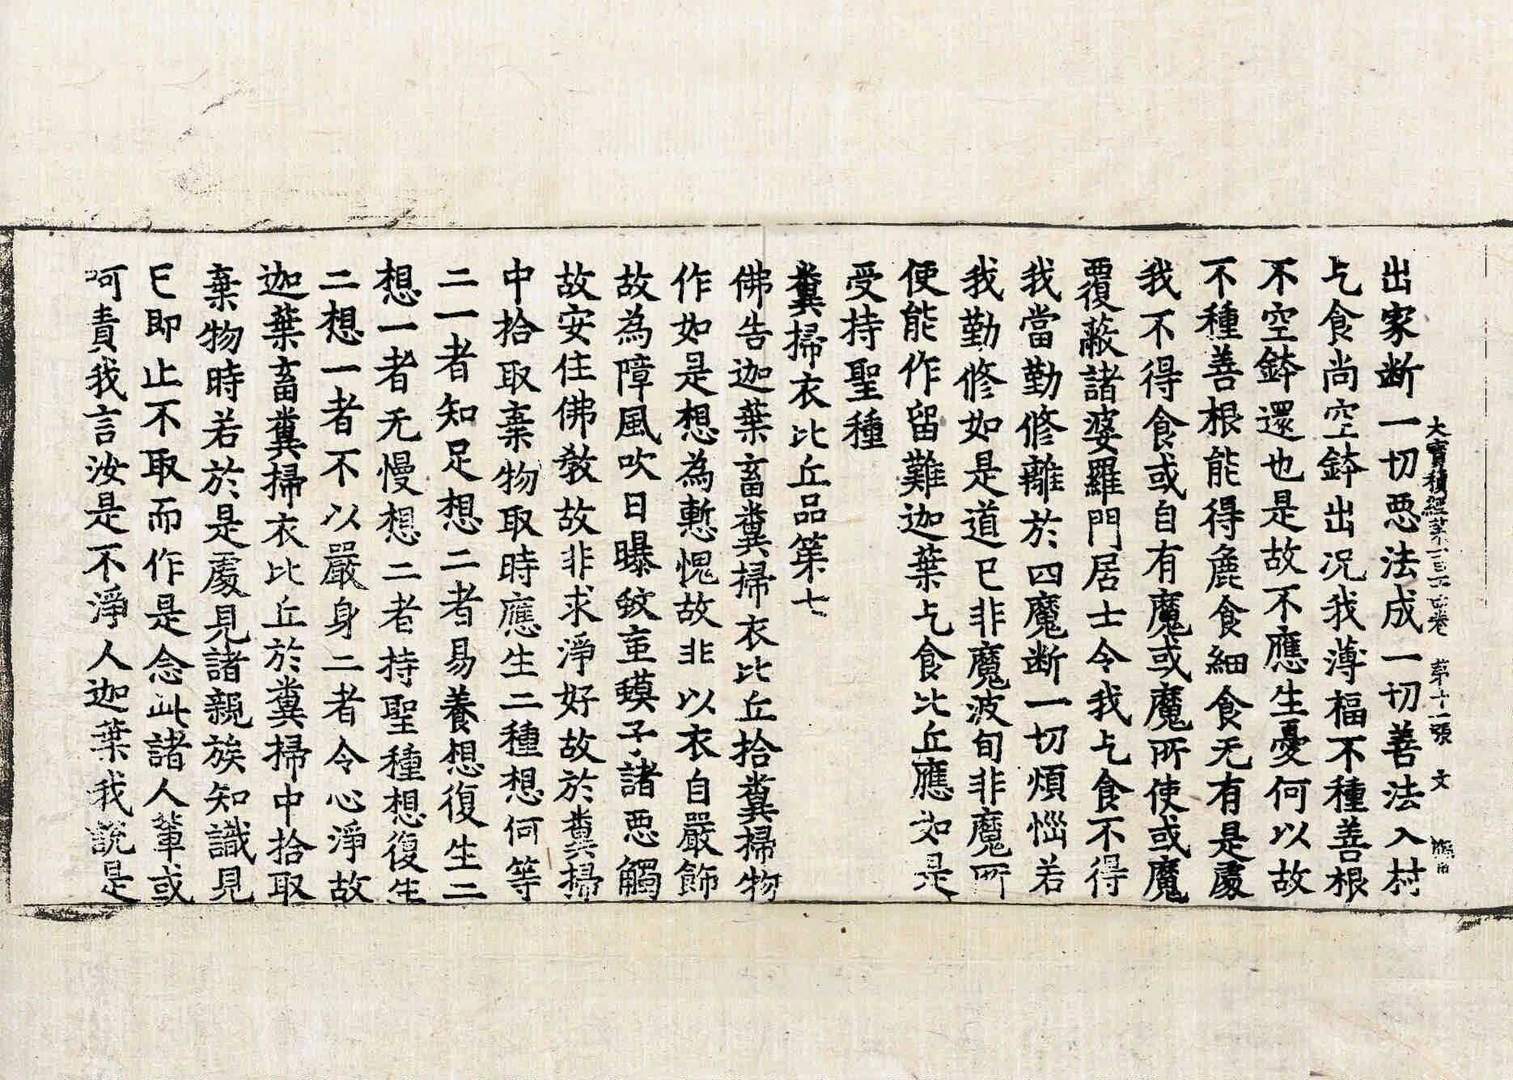 大寶積經第一百一十四卷 第十一張 文
出家断一切惡法成一切善法入村
乞食尚空鉢出况我薄福不種善根
不空鉢還也是故不應生憂何以故
不種善根能得麁食細食无有是處
我不得食或自有魔或魔所使或魔
覆蔽諸婆羅門居士令我乞食不得
我當勤修離於四魔断一切煩惱若
我勤修如是道已非魔波旬非魔所
便能作留難迦葉乞食比丘應如是
受持聖種
糞掃衣比丘品第七
佛告迦葉畜糞掃衣比丘拾糞掃物
作如是想為慙愧故非以衣自嚴飾
故為障風吹日曝蚊䖟蟆子諸惡觸
故安住佛教故非求淨好故於糞掃
中拾取棄物取時應生二種想何等
二一者知足想二者易養想復生二
想一者无慢想二者持聖種想復生
二想一者不以嚴身二者令心淨故
迦葉畜糞掃衣比丘於糞掃中拾取
棄物時若於是處見諸親族知識見
已即止不取而作是念此諸人輩或
呵責我言汝是不淨人迦葉我說是